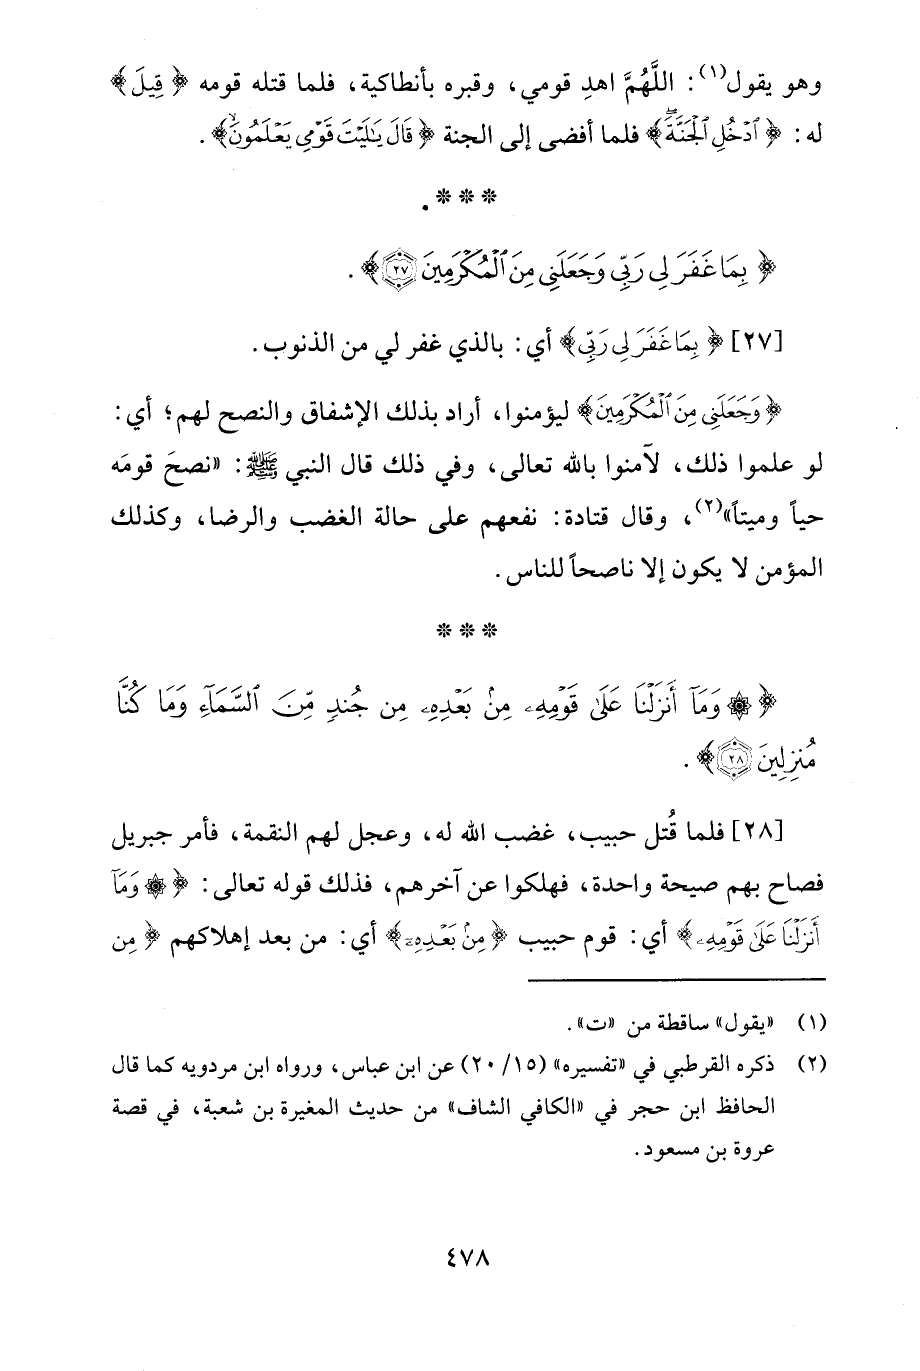 وهو يقول(١): اللَّهُمَّ اهدِ قومي، وقبره بأنطاكية، فلما قتله قومه ﴿قِيلَ﴾
له: ﴿ٱدْخُلِ ٱلْجَنَّةَۖ﴾ فلما أفضى إلى الجنة ﴿قَالَ يَٰلَيْتَ قَوْمِي يَعْلَمُونَۙ﴾.
* * *.
﴿بِمَا غَفَرَ لِي رَبِّي وَجَعَلَنِي مِنَ ٱلْمُكْرَمِينَ ٢٧﴾.
[٢٧] ﴿بِمَا غَفَرَ لِي رَبِّي﴾ أي: بالذي غفر لي من الذنوب.
﴿وَجَعَلَنِي مِنَ ٱلْمُكْرَمِينَ﴾ ليؤمنوا، أراد بذلك الإشفاق والنصح لهم؛ أي:
لو علموا ذلك، لآمنوا بالله تعالى، وفي ذلك قال النبي ﷺ: «نصحَ قومَه
حياً وميتاً»(٢)، وقال قتادة: نفعهم على حالة الغضب والرضا، وكذلك
المؤمن لا يكون إلا ناصحاً للناس.
* * *
﴿۞ وَمَآ أَنزَلْنَا عَلَىٰ قَوْمِهِۦ مِنۢ بَعْدِهِۦ مِن جُندٍ مِّنَ ٱلسَّمَآءِ وَمَا كُنَّا
مُنزِلِينَ ٢٨﴾.
[٢٨] فلما قُتل حبيب، غضب الله له، وعجل لهم النقمة، فأمر جبريل
فصاح بهم صيحة واحدة، فهلكوا عن آخرهم، فذلك قوله تعالى: ﴿۞ وَمَآ
أَنزَلْنَا عَلَىٰ قَوْمِهِۦ﴾ أي: قوم حبيب ﴿مِنۢ بَعْدِهِۦ﴾ أي: من بعد إهلاكهم ﴿مِن
(١) «يقول» ساقطة من «ت».
(٢) ذكره القرطبي في «تفسيره» (١٥/ ٢٠) عن ابن عباس، ورواه ابن مردويه كما قال
الحافظ ابن حجر في «الكافي الشاف» من حديث المغيرة بن شعبة، في قصة
عروة بن مسعود.
٤٧٨